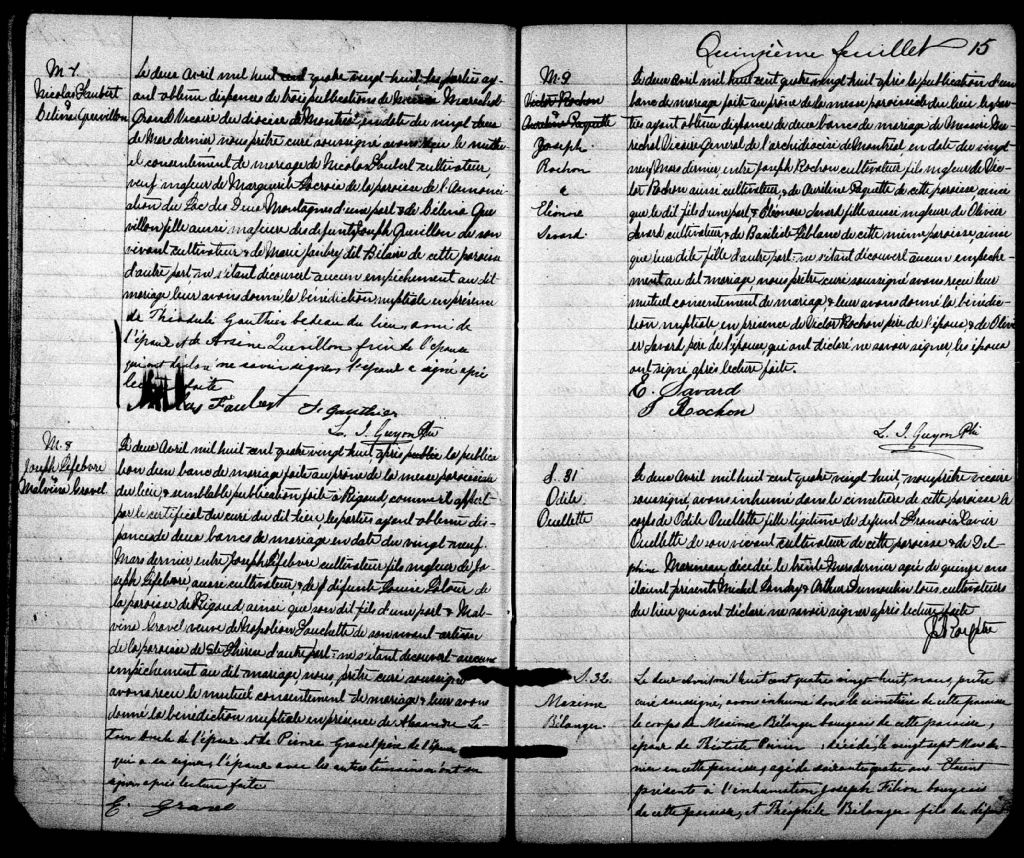 M. 7.
Nicolas Faubert
&
Délina Quevillon
Le deux Avril mil huit cent quatre vingt-huit, les parties ay-
ant obtenu dispenses de trois publications de Messire Marechal
Grand Vicaire du diocèse de Montréal, en date du vingt deux
de Mars dernier nous prêtre curé soussigné avons reçu le mutu-
el consentement de mariage de Nicolas Faubert cultivateur,
veuf majeur de Marguerite Lacroix de la paroisse de l'Annonci-
ation du Lac des Deux Montagnes d'une part & de Délina Que
villon fille aussi majeure de defunt Joseph Quevillon de son
vivant cultivateur & de Marie dit Bélair de cette paroisse
d'autre part, ne s'étant découvert aucun empêchement au dit
mariage leur avons donné la bénédiction nuptiale en présence
de Théodule Gauthier bedeau du lieu, ami de
l'époux & de Arsène Quevillon frère de l'épouse
qui ont déclaré ne savoir signer, l'époux a signé après
lecture faite
Nicolas Faubert T. Gauthier
L. J. Guyon Ptr
M. 8
Joseph Lefebvre
&
Malvina Gravel
Le deux Avril mil huit cent quatre vingt huit après publie la publica
tion d'un banc de mariage faite au prône de la messe paroissiale
du lieu, & semblable publication faite à Rigaud comme il appert
par le certificat du curé du dit lieu les parties ayant obtenu dis
pense de deux bancs de mariage en date du vingt neuf
Mars dernier entre Joseph Lefebvre cultivateur fils majeur de Jo-
seph Lefebvre aussi cultivateur, & de defunte Louise
de la paroisse de Rigaud ainsi que son dit fils d'une part & Mal-
vina Gravel veuve de Napoléon de son vivant artisan
de la paroisse de Ste Thérèse d'autre part ne s'étant découvert aucun
empêchement au dit mariage nous, prêtre curé soussigné
avons reçu le mutuel consentement de mariage & leur avons
donné la bénédiction nuptiale en présence de
oncle de l'époux & de Pierre Gravel père de l'épouse
qui a su signer, l'épouse avec les autres témoins n'ont su
signer après lecture faite
E. Gravel
Quinzième feuillet 15
M. 9
Victor Rochon
&
Aurélina Paquette
Joseph
Rochon
&
Eléonore
Savard.
Le deux Avril mil huit cent quatre vingt huit après la publication d'un
banc de mariage faite au prône de la messe paroissiale du lieu les par
ties ayant obtenu dispense de deux bancs de mariage de Messire Ma
rechal Vicaire General de l'archidiocèse de Montréal en date du vingt
neuf Mars dernier entre Joseph Rochon cultivateur fils majeur de Vic
tor Rochon aussi cultivateur, & de Aurélina Paquette de cette paroisse ainsi
que le dit fils d'une part & Eléonore Savard fille aussi majeure de Olivier
Savard cultivateur, & de Basilisse Leblanc de cette même paroisse, ainsi
que leur dite fille d'autre part ne s'étant découvert aucun empêche-
ment au dit mariage, nous prêtre curé soussigné avons reçu leur
mutuel consentement de mariage & leur avons donné la bénédic
tion nuptiale en présence de Victor Rochon père de l'époux & de Olivi
er Savard, père de l'épouse, qui ont déclaré ne savoir signer, les époux
ont signé après lecture faite.
E. Savard
J Rochon
L. J. Guyon Ptr
S. 31
Odile
Ouellette
Le deux Avril mil huit cent quatre vingt huit, nous prêtre vicaire
soussigné avons inhumé dans le cimetière de cette paroisse le
corps de Odile Ouellette fille légitime de defunt Francois Xavier
Ouellette de son vivant cultivateur de cette paroisse & de Del-
phine Marineau décédée le trente Mars dernier agée de quinze ans
étaient présents Michel Landry & Arthur Dumoulin tous cultivateurs
du lieu qui ont déclaré ne savoir signer après lecture faite
S. 32.
Maxime
Bélanger
Le deux avril mil huit cent quatre vingt huit, nous, prêtre
curé soussigné, avons inhumé dans le cimetière de cette paroisse
le corps de Maxime Bélanger bourgeois de cette paroisse,
époux de Baptiste Poirier décédé le vingt sept Mars der-
nier en cette paroisse, agé de soixante quatre ans. Etaient
présents à l'inhumation Joseph Filion bourgeois
de cette paroisse, & Théophile Bélanger fils du défunt